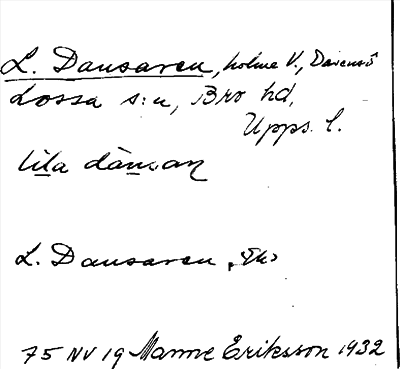 L. Dansaren, holme V., Dävensö
Lossa s:n, Bro hd,
Upps. l.
lit̲a dàn̲san
L. Dansaren, Ek
75 NV 19 Manne Eriksson 1932